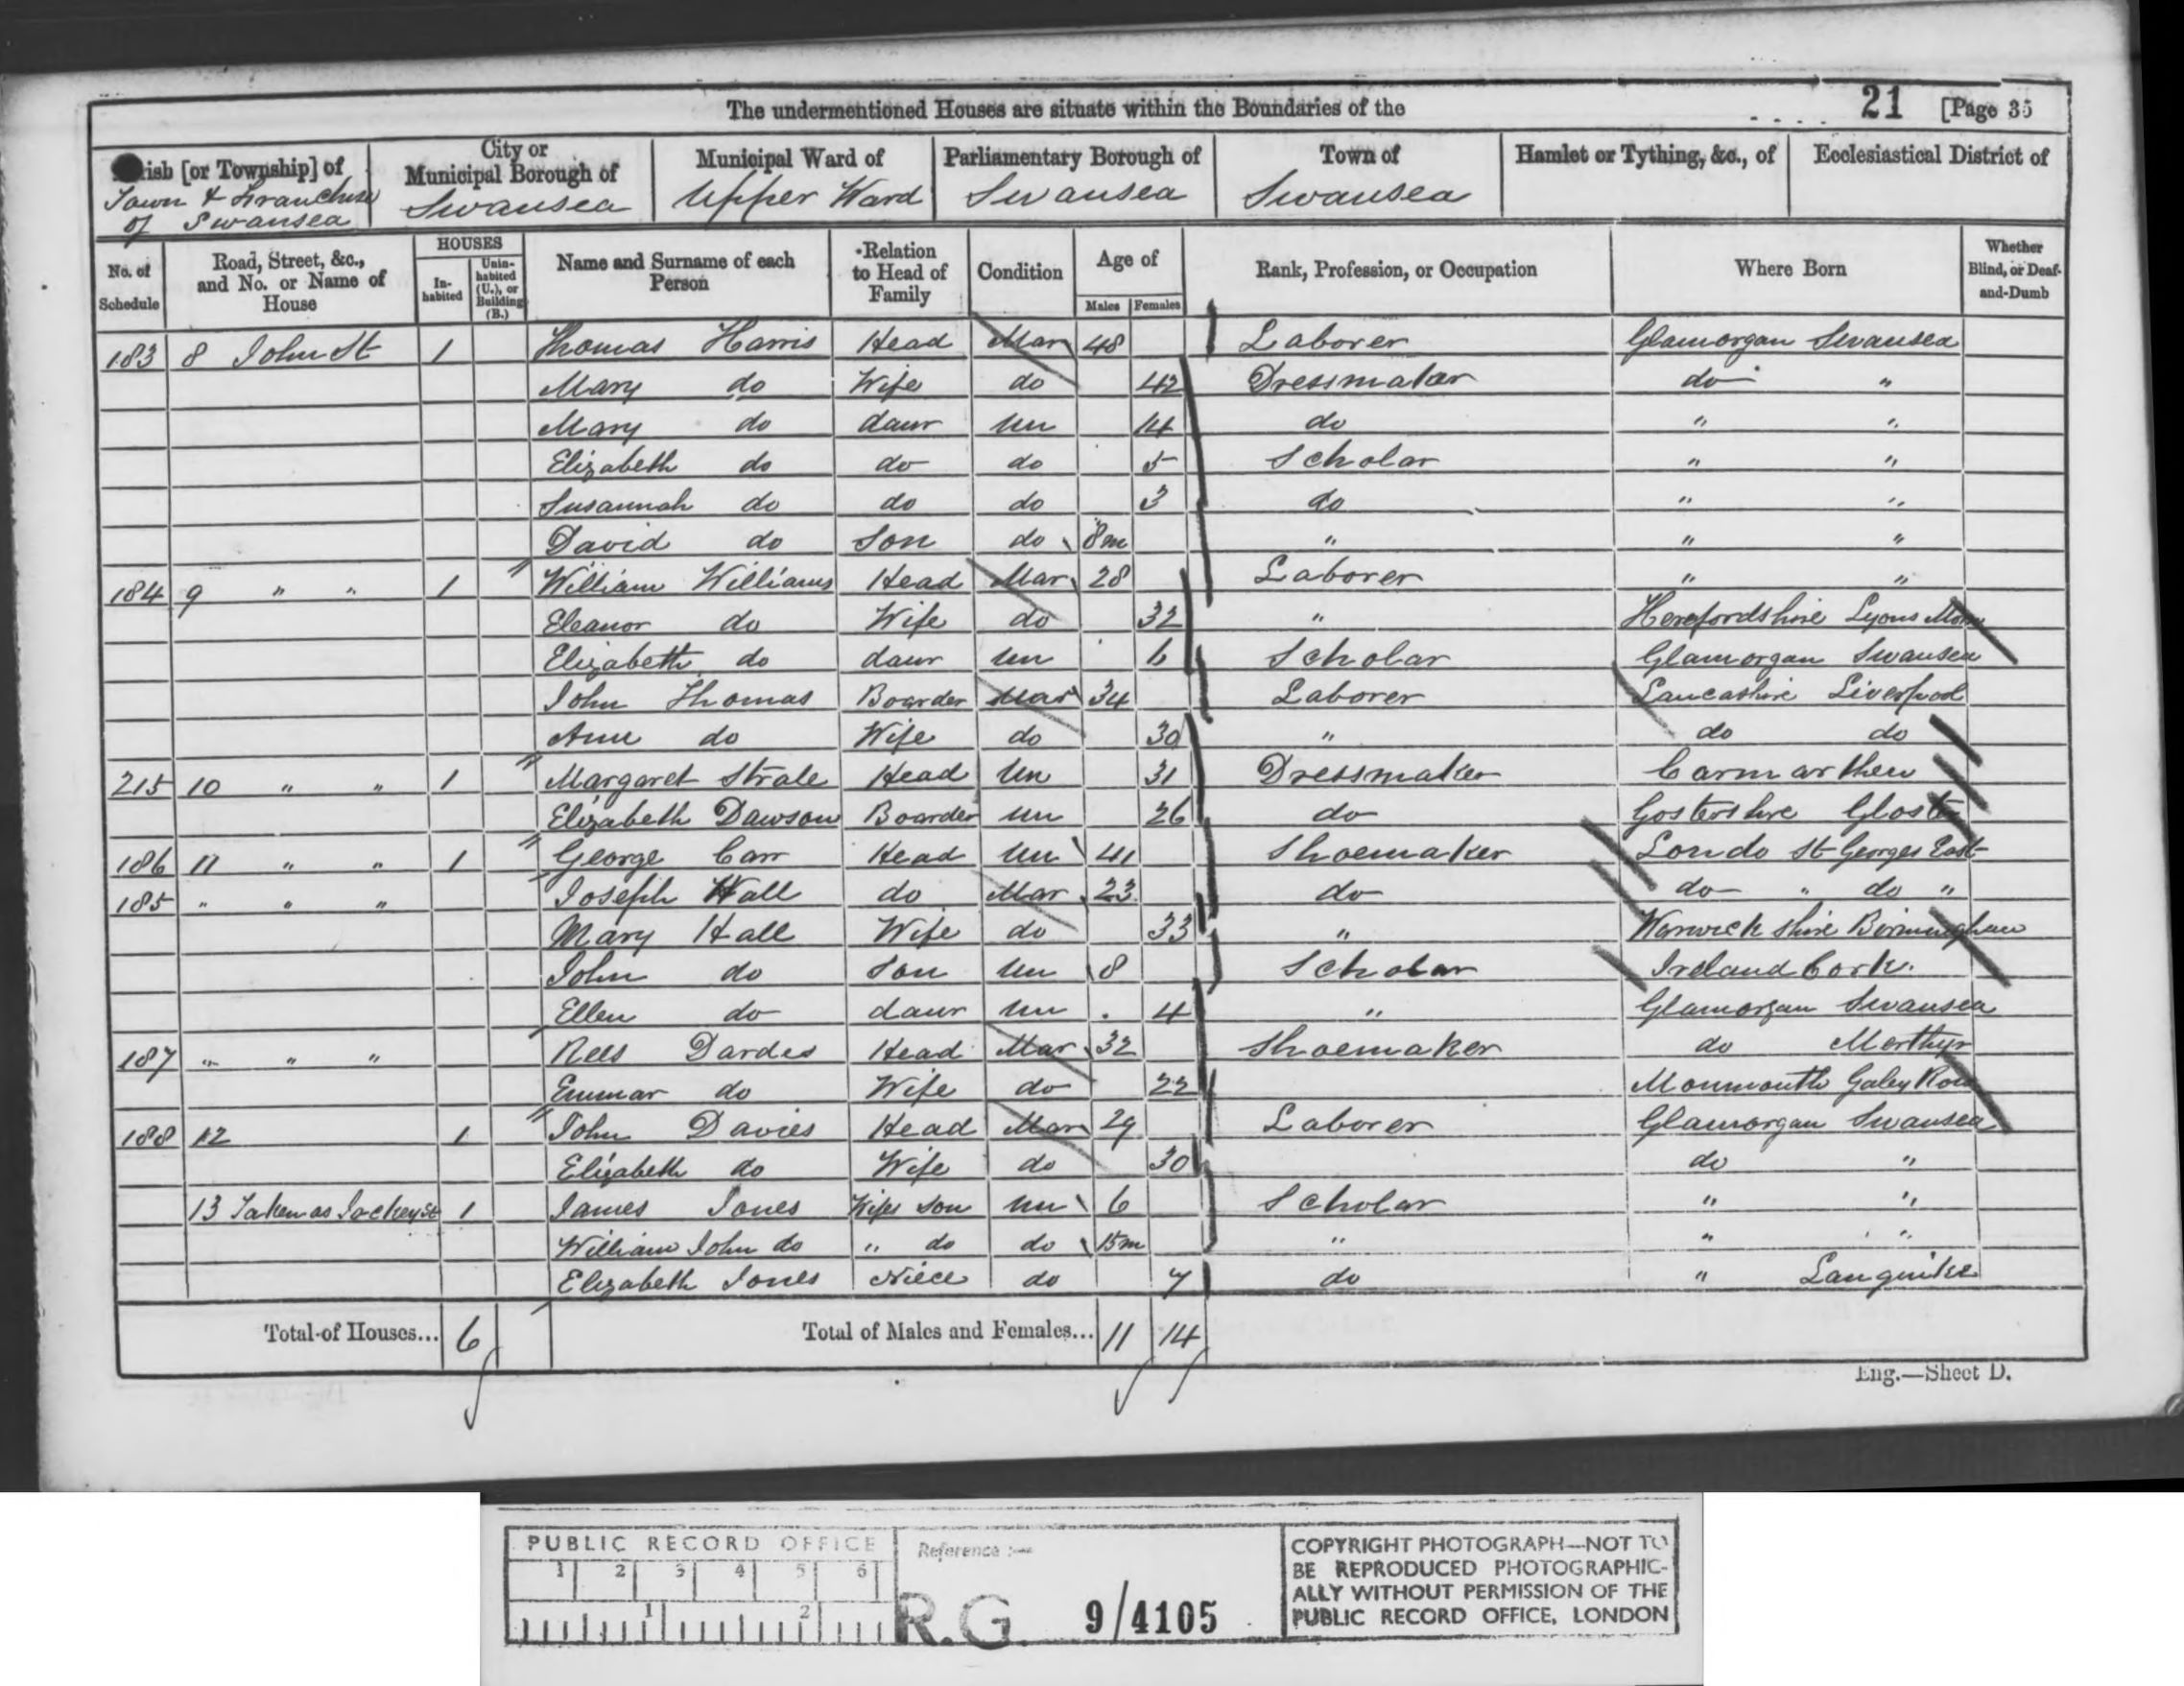 The undermentioned Houses are situate within the Boundaries of the 21 [Page 35
rish [or Township] of
Town & Franchise of Swansea
City or Municipal Borough of
Swansea
Municipal Ward of
Upper Ward
Parliamentary Borough of
Swansea
Town of
Swansea
Hamlet or Tything, &c., of
Ecclesiastical District of
No. of Schedule
Road, Street, &c., and No. or Name of House
HOUSES
In-habited
Unin-habited (U.), or Building (B.)
Name and Surname of each Person
Relation to Head of Family
Condition
Age of
Males Females
Rank, Profession, or Occupation
Where Born
Whether Blind, or Deaf-and-Dumb
183 8 John St 1 Thomas Harris Head Mar 48 Laborer Glamorgan Swansea
Mary do Wife do 42 Dressmaker do "
Mary do daur Un 14 do " "
Elizabeth do do do 5 Scholar " "
Susannah do do do 3 do " "
David do Son do 8m " " "
184 9 " " 1 William Williams Head Mar 28 Laborer " "
Eleanor do Wife do 32 " Herefordshire Lyons
Elizabeth do daur Un 6 Scholar Glamorgan Swansea
John Thomas Boarder Mar 34 Laborer Lancashire Liverpool
Ann do Wife do 30 " do do
215 10 " " 1 Margaret Strale Head Un 31 Dressmaker Carmarthen
Elizabeth Dawson Boarder Un 26 do Gostershire Gloster
186 11 " " 1 George Carr Head Un 41 Shoemaker Londo St Georges East
185 " " " Joseph Hall do Mar 23 do do " do "
Mary Hall Wife do 33 " Warwick shire Birmingham
John do Son Un 8 Scholar Ireland Cork.
Ellen do daur Un 4 " Glamorgan Swansea
187 " " " Rees Dardes Head Mar 32 Shoemaker do Merthyr
Emmar do Wife do 22 Monmouth
188 12 1 John Davies Head Mar 29 Laborer Glamorgan Swansea
Elizabeth do Wife do 30 do "
13 Taken as Jockey St 1 James Jones Wifes Son Un 6 Scholar " "
William John do " do do 15m " " "
Elizabeth Jones Niece do 7 do " Languike
Total of Houses... 6 Total of Males and Females... 11 14
Eng.—Sheet D.
PUBLIC RECORD OFFICE
1 2 3 4 5 6
1 2
Reference :—
R.G. 9/4105
COPYRIGHT PHOTOGRAPH—NOT TO
BE REPRODUCED PHOTOGRAPHIC-
ALLY WITHOUT PERMISSION OF THE
PUBLIC RECORD OFFICE, LONDON